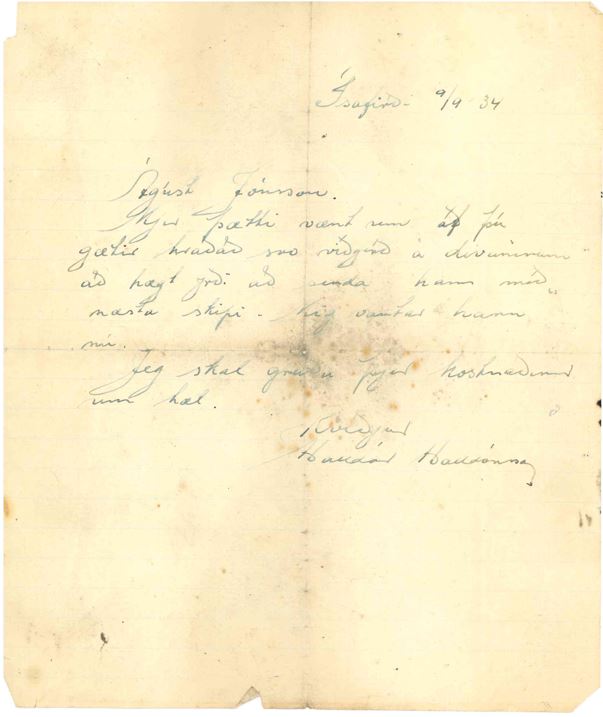 Ísafirði 9/4 34
Ágúst Jónsson.
Mjer þætti vænt um ef þú
gætir hraðað svo viðgerð á dívaninum
að hægt yrði að senda hann með
næsta skipi. Mig vantar hann
nú.
Jeg skal greiða fyrir kostnaðinn
um hæl.
Kveðjur
Halldór Halldórsson